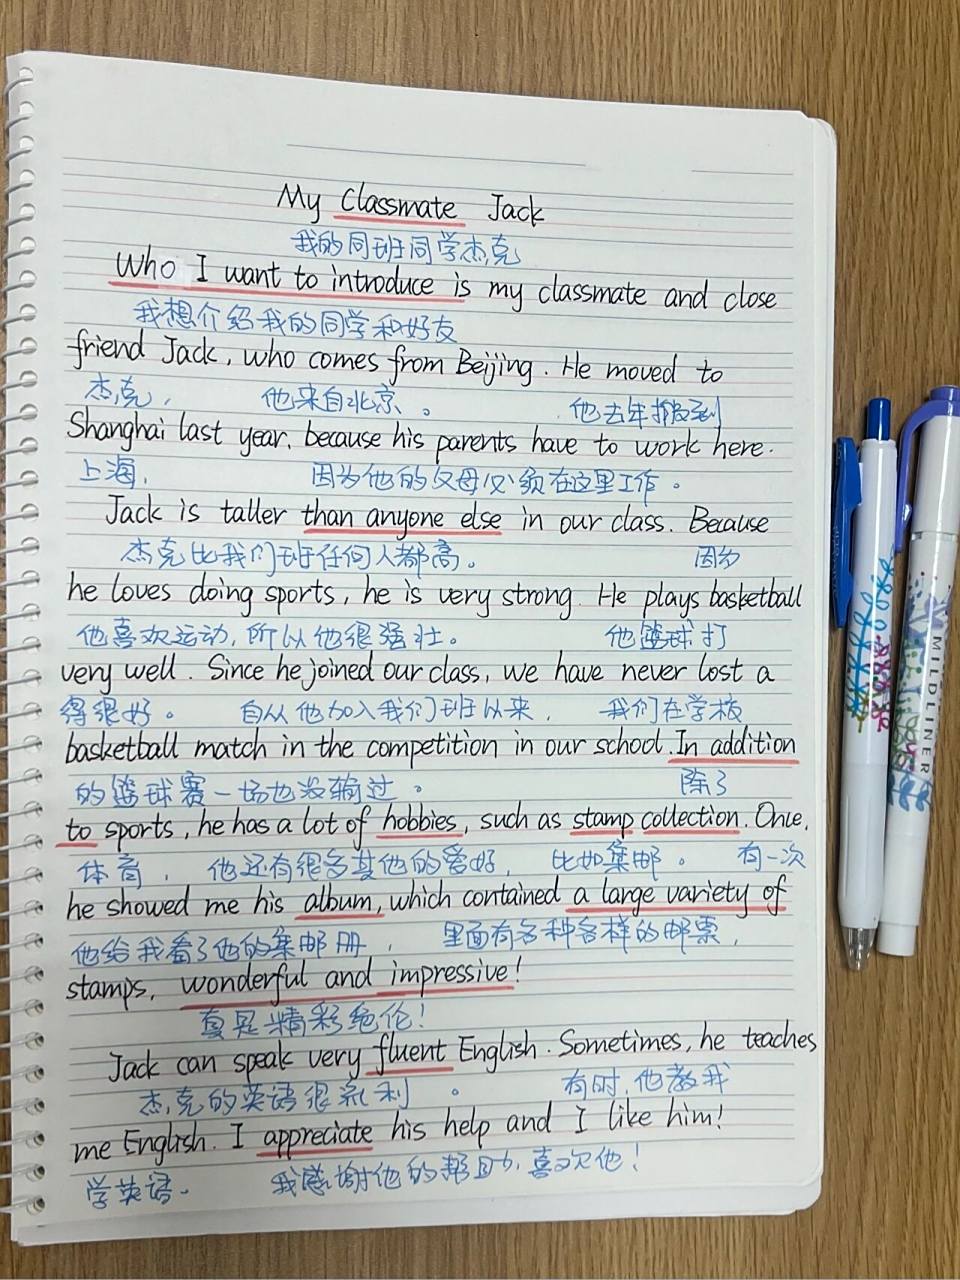 My Classmate Jack
我的同班同学杰克
Who I want to introduce is my classmate and close
我想介绍我的同学和好友
friend Jack, who comes from Beijing. He moved to
杰克, 他来自北京。 他去年搬到
Shanghai last year, because his parents have to work here.
上海, 因为他的父母必须在这里工作。
Jack is taller than anyone else in our class. Because
杰克比我们班任何人都高。 因为
he loves doing sports, he is very strong. He plays basketball
他喜欢运动,所以他很强壮。 他篮球打
very well. Since he joined our class, we have never lost a
得很好。 自从他加入我们班以来, 我们在学校
basketball match in the competition in our school. In addition
的篮球赛一场也没输过。 除了
to sports, he has a lot of hobbies, such as stamp collection. Once,
体育, 他还有很多其他的爱好, 比如集邮。 有一次
he showed me his album, which contained a large variety of
他给我看了他的集邮册, 里面有各种各样的邮票,
stamps, wonderful and impressive!
真是精彩绝伦!
Jack can speak very fluent English. Sometimes, he teaches
杰克的英语很流利 。 有时,他教我
me English. I appreciate his help and I like him!
学英语。 我感谢他的帮助,喜欢他!
MILDLINER